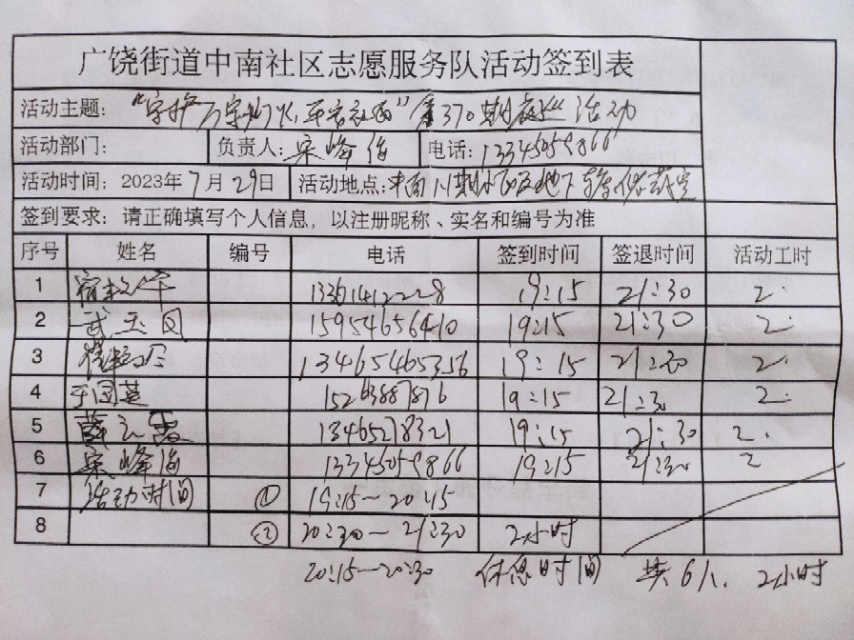 广饶街道中南社区志愿服务队活动签到表
活动主题: "守护万家灯火 平安社区" 第370期夜巡活动
活动部门: 负责人: 宋峰俊 电话: 13345059866
活动时间: 2023年7月29日 活动地点: 中南 期小区及地下 储藏室
签到要求: 请正确填写个人信息，以注册昵称、实名和编号为准
序号 姓名 编号 电话 签到时间 签退时间 活动工时
1 13361412228 19:15 21:30 2.
2 武玉凤 15954656410 19:15 21:30 2.
3 13465465356 19:15 21:30 2.
4 于国英 15263887876 19:15 21:30 2.
5 薛 霞 13465278321 19:15 21:30 2.
6 宋峰俊 13345059866 19:15 21:30 2
7 活动时间 ① 19:15—20:15
8 ② 20:30—21:30 2小时
20:15—20:30 休息时间 共6人. 2小时